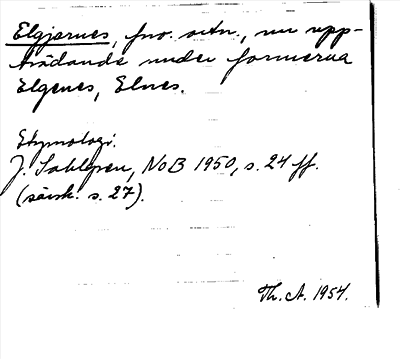 Elgjarnes, fno. ortn., nu upp-
trädande under formerna
Elgenes, Elnes.
Etymologi.
J. Sahlgren, NoB 1950, s. 24 ff.
(särsk. s. 27).
Th. A. 1954.